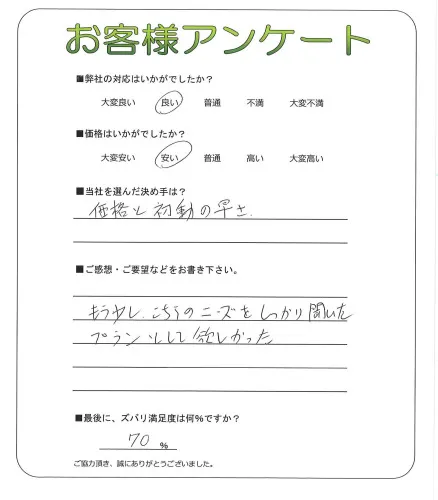 お客様アンケート
■弊社の対応はいかがでしたか？
大変良い 良い 普通 不満 大変不満
■価格はいかがでしたか？
大変安い 安い 普通 高い 大変高い
■当社を選んだ決め手は？
価格と初動の早さ.
■ご感想・ご要望などをお書き下さい。
もう少し、こちらのニーズをしっかり聞いた
プランにして欲しかった
■最後に、ズバリ満足度は何％ですか？
70 %
ご協力頂き、誠にありがとうございました。